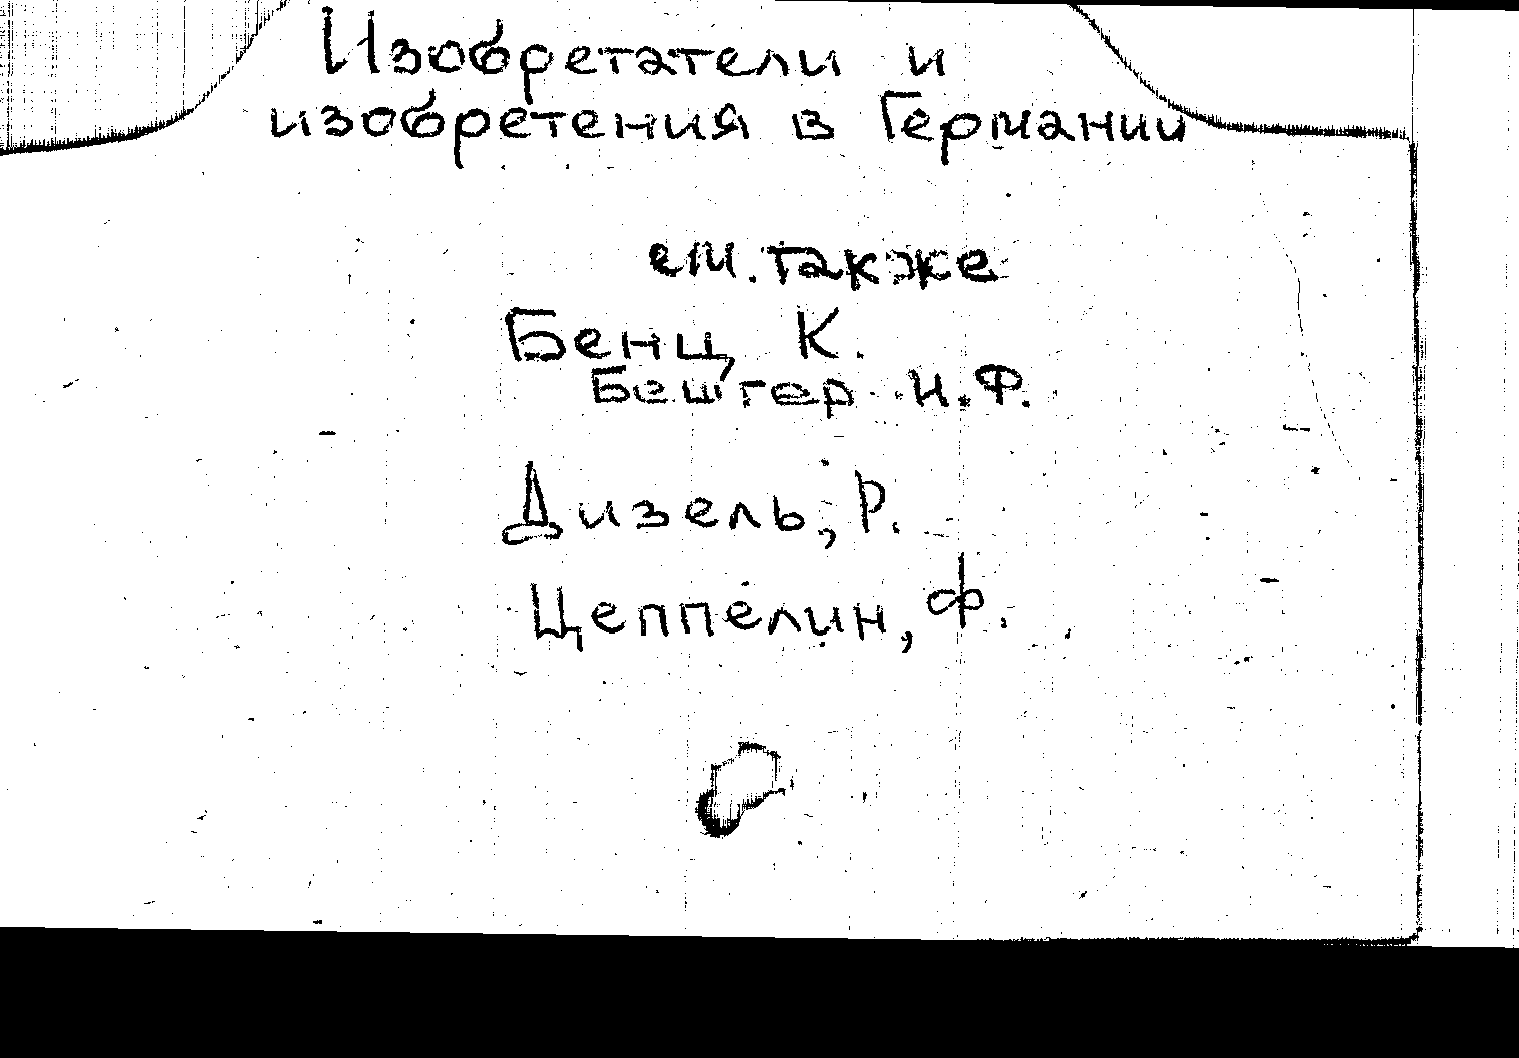 Изобретатели и
изобретения в Германии
см. также
Бенц, К.
Бештер И.Ф.
Дизель, Р.
Цеппелин, Ф.